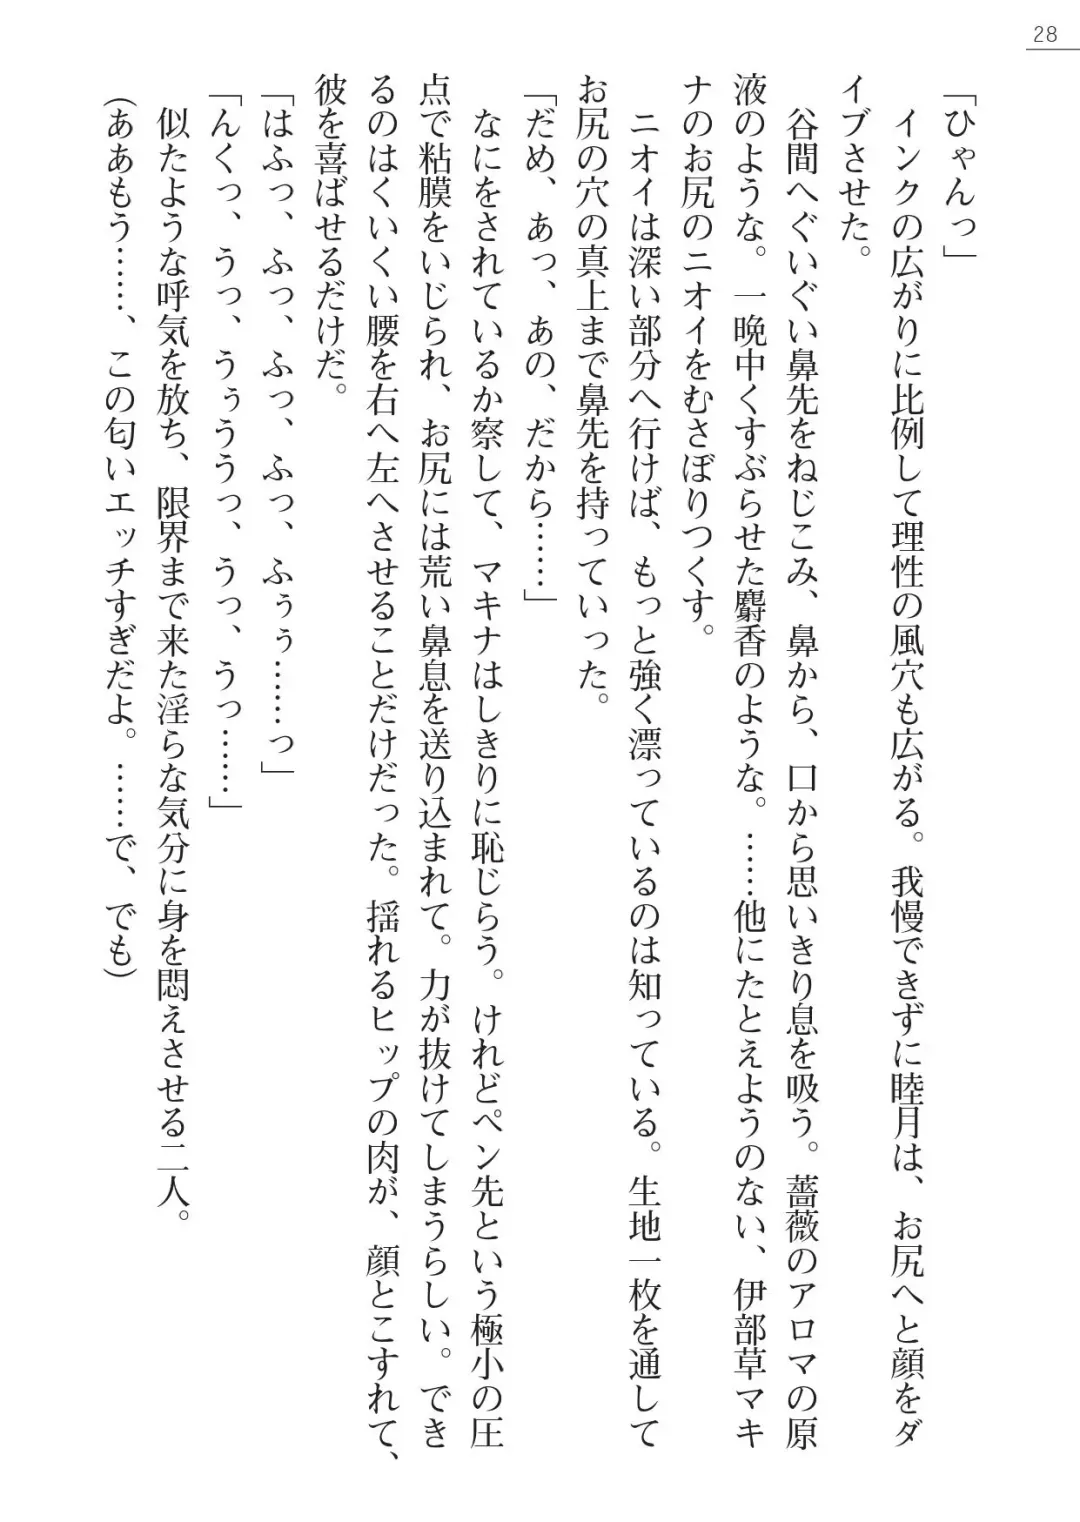 28
「ひゃんっ」
　インクの広がりに比例して理性の風穴も広がる。我慢できずに睦月は、お尻へと顔をダ
イブさせた。
　谷間へぐいぐい鼻先をねじこみ、鼻から、口から思いきり息を吸う。薔薇のアロマの原
液のような。一晩中くすぶらせた麝香のような。……他にたとえようのない、伊部草マキ
ナのお尻のニオイをむさぼりつくす。
　ニオイは深い部分へ行けば、もっと強く漂っているのは知っている。生地一枚を通して
お尻の穴の真上まで鼻先を持っていった。
「だめ、あっ、あの、だから……」
　なにをされているか察して、マキナはしきりに恥じらう。けれどペン先という極小の圧
点で粘膜をいじられ、お尻には荒い鼻息を送り込まれて。力が抜けてしまうらしい。でき
るのはくいくい腰を右へ左へさせることだけだった。揺れるヒップの肉が、顔とこすれて、
彼を喜ばせるだけだ。
「はふっ、ふっ、ふっ、ふっ、ふぅぅ……っ」
「んくっ、うっ、うぅううっ、うっ、うっ……」
　似たような呼気を放ち、限界まで来た淫らな気分に身を悶えさせる二人。
(ああもう……、この匂いエッチすぎだよ。……で、でも)